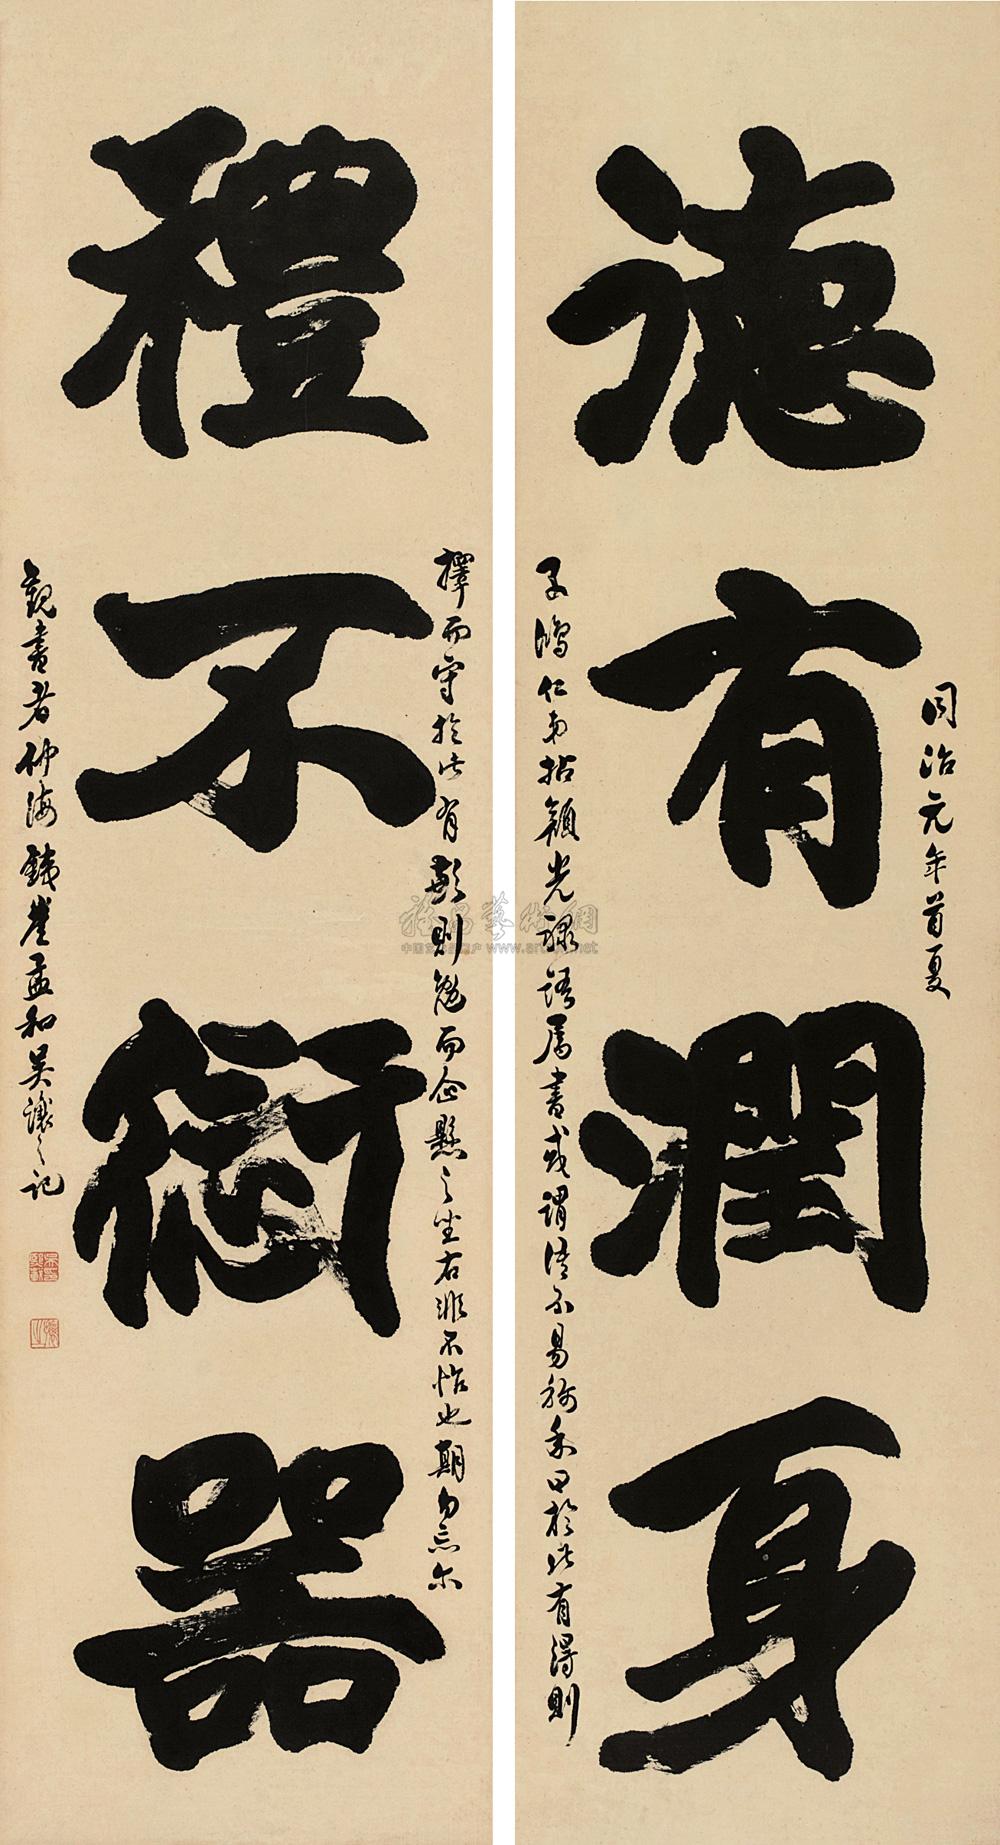 德有潤身
禮不愆器
同治元年首夏
子鴻仁弟拈顏光祿語屬書或謂語不易称余曰於此有得則
擇而守於此有歉則勉而企懸之坐右非不怡也期勿忘尔
觀書者仲海鉄崖孟和吳讓之記
www.art
.net